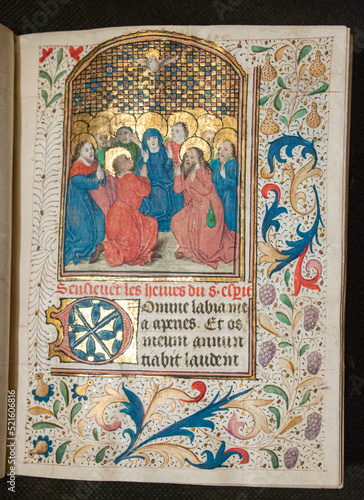 Sensievet les heures du s. esprit
Domine labia me
a aperies. Et os
meum annun
tiabit laudem
Adobe Stock | #521606816